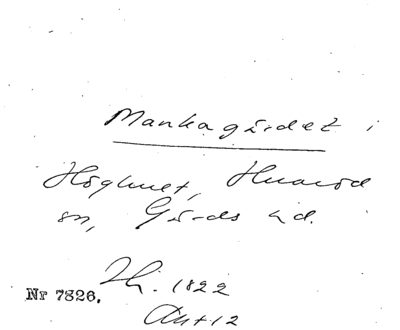 Mankagärdet i
Höghult, Huaröd
sn, Gärds hd.
Nr 7826.
1822
Akt 12